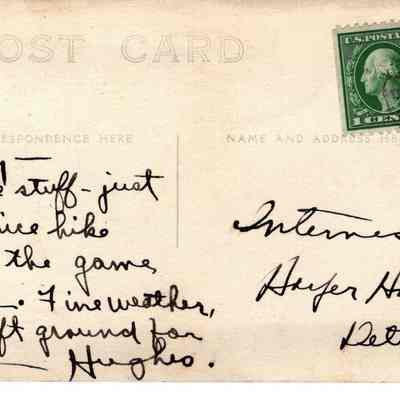 POST CARD
U.S. POSTA
1 CENT
RESPONDENCE HERE
NAME AND ADDRESS HE
stuff - just
nice hike
the game,
Fine weather,
ft ground for
Hughes.
Internes
Harper H
Det